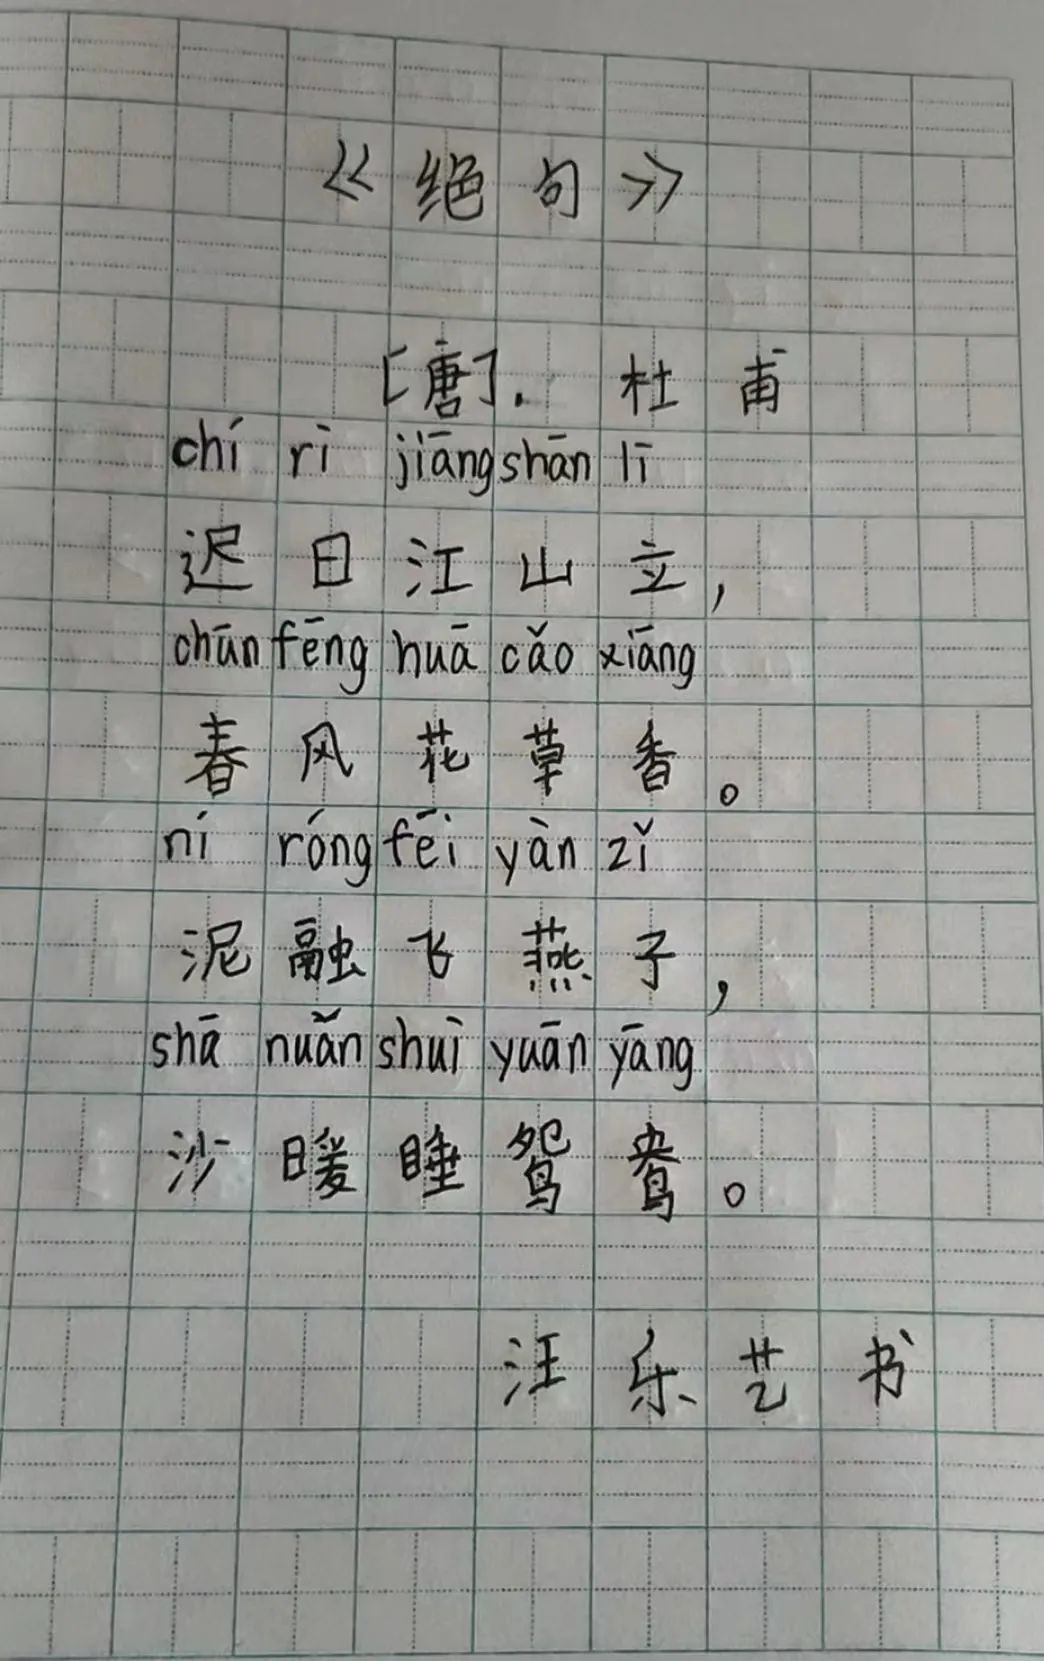 《绝句》
[唐]. 杜甫
chí rì jiāng shān lī
迟日江山立,
chūn fēng huā cǎo xiāng
春风花草香。
ní róng fēi yàn zǐ
泥融飞燕子,
shā nuǎn shuì yuān yāng
沙暖睡鸳鸯。
汪乐艺书